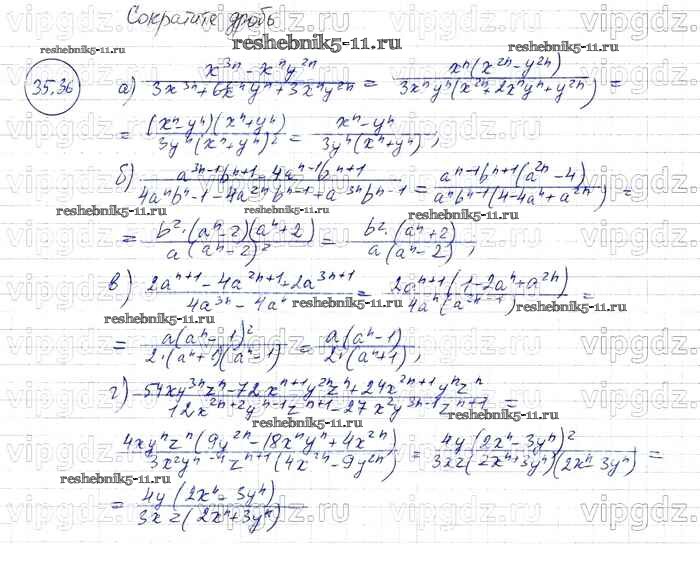 Сократите дробь
reshebnik5-11.ru
35.36
а) (x^{3n} - x^n y^{2n}) / (3x^{3n} + 6x^n y^n + 3x^n y^{2n}) = (x^n (x^{2n} - y^{2n})) / (3x^n y^n (x^{2n} + 2x^n y^n + y^{2n})) =
= ((x^n - y^n)(x^n + y^n)) / (3y^n (x^n + y^n)^2) = (x^n - y^n) / (3y^n (x^n + y^n)),
б) (a^{3n-1} b^{n+1} - 4a^{n-1} b^{n+1}) / (4a^n b^{n-1} - 4a^{2n} b^{n-1} + a^{3n} b^{n-1}) = (a^{n-1} b^{n+1} (a^{2n} - 4)) / (a^n b^{n-1} (4 - 4a^n + a^{2n})) =
= (b^2 · (a^n - 2)(a^n + 2)) / (a (a^n - 2)^2) = (b^2 · (a^n + 2)) / (a (a^n - 2)),
в) (2a^{n+1} - 4a^{2n+1} + 2a^{3n+1}) / (4a^{3n} - 4a^n) = (2a^{n+1} (1 - 2a^n + a^{2n})) / (4a^n (a^{2n} - 1)) =
= (a (a^n - 1)^2) / (2 · (a^n + 1)(a^n - 1)) = (a (a^n - 1)) / (2 · (a^n + 1)),
г) (54xy^{3n} z^n - 72x^{n+1} y^{2n} z^n + 24x^{2n+1} y^n z^n) / (12x^{2n+2} y^{n-1} z^{n+1} - 27x^2 y^{3n-1} z^{n+1}) =
(4xy^n z^n (9y^{2n} - 18x^n y^n + 4x^{2n})) / (3x^2 y^{n-1} z^{n+1} (4x^{2n} - 9y^{2n})) = (4y (2x^n - 3y^n)^2) / (3xz (2x^n + 3y^n)(2x^n - 3y^n)) =
= (4y (2x^n - 3y^n)) / (3xz (2x^n + 3y^n))
vipgdz.ru